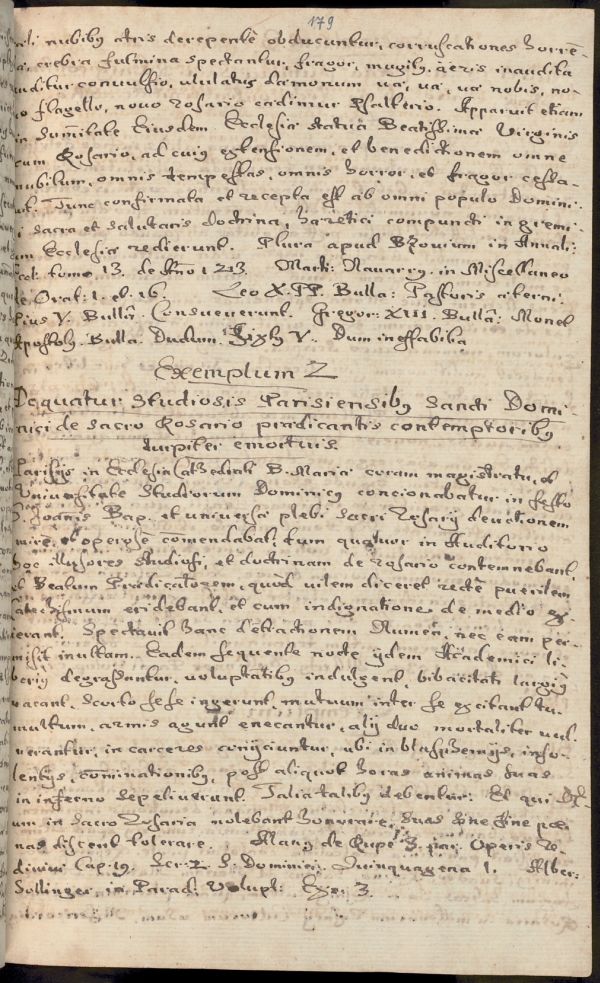 179
nubibus atris derepente obducuntur, corruscationes horre-
crebra fulmina spectantur, fragor, mugitus, aeris inaudita
auditur convulsio, ululatus daemonum vae, vae, vae nobis, no-
flagello, novo rosario caedimur psalterio. Apparuit etiam
in sumitate Eiusdem Ecclesiae statua Beatissimae Virginis
cum Rosario, ad cuius extensionem, et benedictionem omne
nubilum, omnis tempestas, omnis horror, et fragor cessa-
Tunc confirmata et recepta est ab omni populo Domini-
sacra et salutaris doctrina, haeretici compuncti in gremi-
um Ecclesiae redierunt. Plura apud Bzovium in Annali:
tomo 13. de Anno 1213. Marti: Navarrus in Miscellaneo
de Orat: 1. et. 16. Leo X. PP. Bulla: Pastoris aeterni.
Pius V. Bulla Consueverunt. Gregor: XIII. Bulla: Monet
Apostolus. Bulla. Dudum. Sixtus V. Dum ineffabilia
Exemplum 2
De quatuor studiosis Parisiensibus Sancti Domi-
nici de sacro Rosario praedicantis contemptoribus
turpiter emortuis
Parisiis in Ecclesia Cathedrali B. Mariae coram magistratu, et
Universitate Studiorum Dominicus concionabatur in festo
S. Joanis Bap. et universae plebi sacri Rosarii devotionem
mire, et operose comendabat: tum quatuor in Auditorio
hoc illusores studiosi, et doctrinam de rosario contemnebant,
et Beatum Praedicatorem, quod vilem diceret recte puerilem
Catechismum eridebant, et cum indignatione de medio ex-
ierant. Spectavit hanc detractionem Numen, nec eam per-
misit inultam. Eadem sequente nocte ijdem Academici li-
berius degrassantur, voluptatibus indulgent, bibacitati largius
vacant, scorto sese ingerunt, mutuum inter se excitant tu-
multum, armis agunt enecantur, alij duo mortaliter vul-
nerantur, in carceres conijciuntur, ubi in blasphemijs, inso-
lentijs, cominationibus, post aliquot horas animas suas
in inferno sepeliverunt. Talia talibus debentur: Et qui
um in sacro Rosario nolebant honorare, suas sine fine poe-
nas discent tolerare. Alanus de Rupe 3. par. Operis re-
divivi Cap. 19. Scr. 2. S. Dominici. Quinquagena 1. Alber:
Sollinger, in Parad: Volupt: Exe: 3.